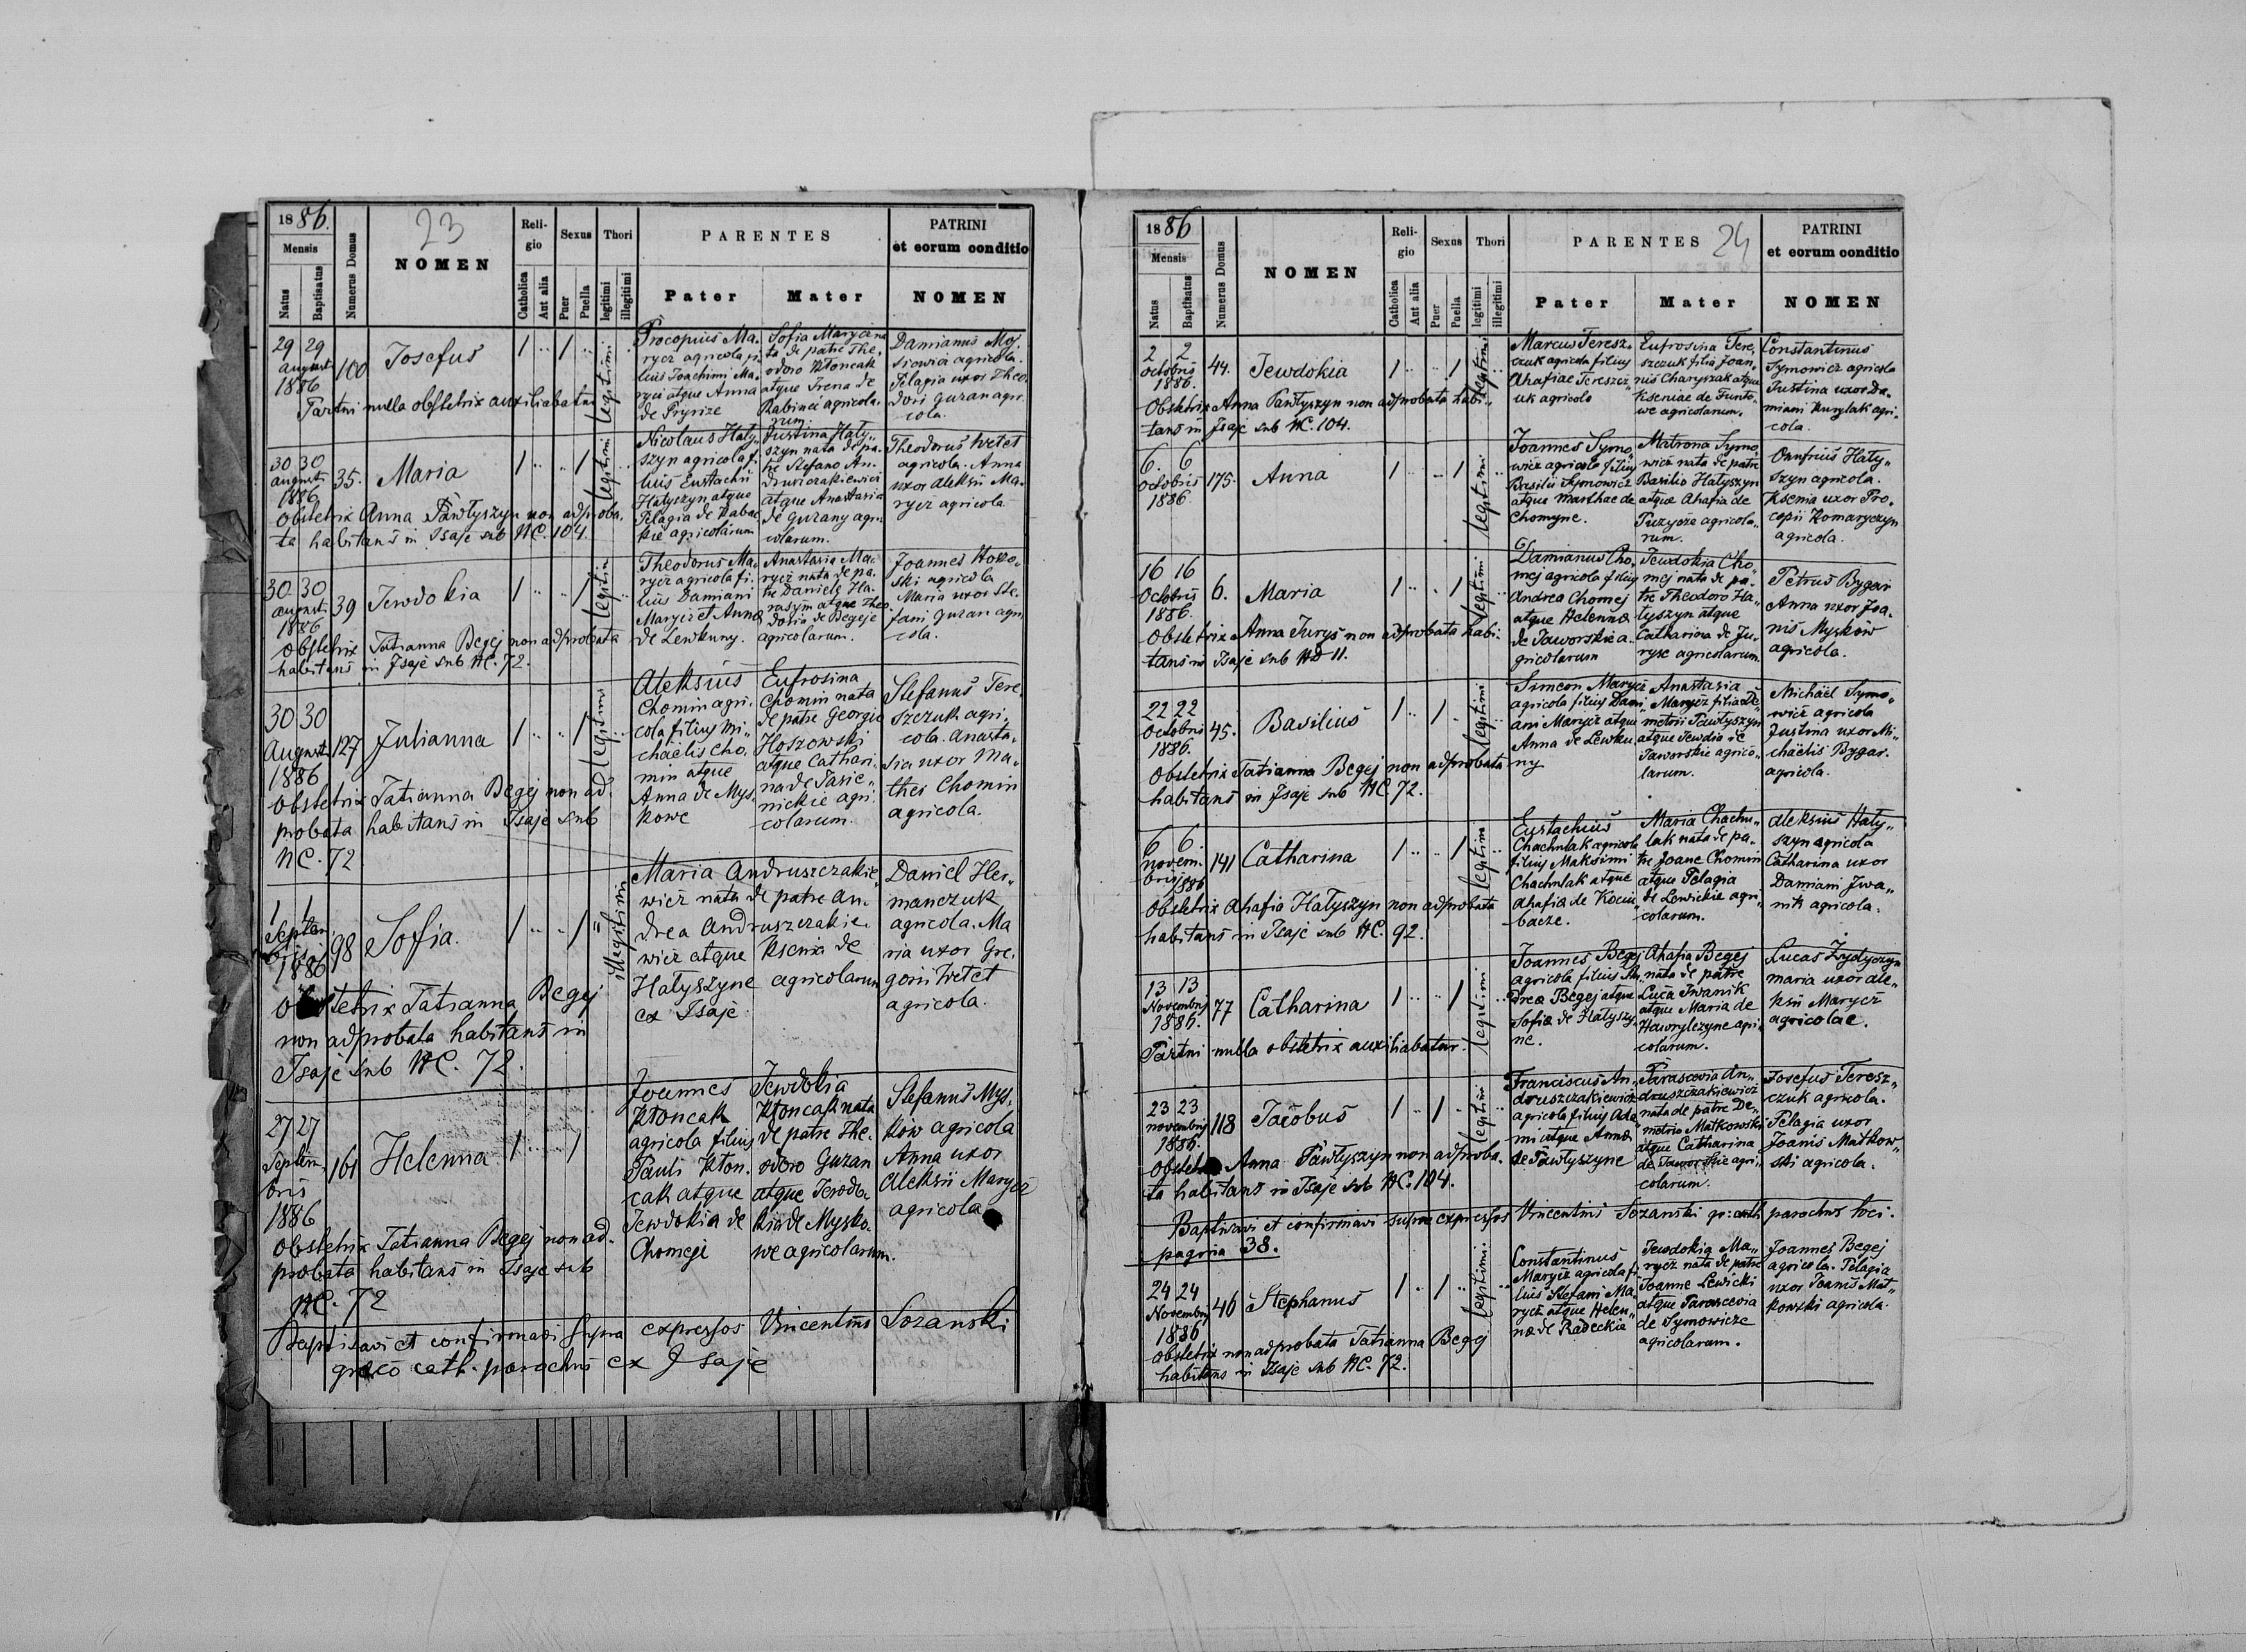 1886.
23
Mensis
Natus
Baptisatus
Numerus Domus
NOMEN
Reli-
gio
Catholica
Aut alia
Sexus
Puer
Puella
Thori
legitimi
illegitimi
PARENTES
Pater
Mater
PATRINI
et eorum conditio
NOMEN
29 29
august.
1886
100
Josefus
1 .. 1 ..
legitimi
Procopius Ma-
rycz agricola fi-
lius Joachimi Ma-
rycz atque Anna
de Prynze
Sofia Marycz na
ta de patre The-
odoro Kłoncak
atque Irena de
Rabinci agricola-
rum.
Damianus Moj-
siowicz agricola.
Pelagia uxor Theo
dori Guzan agri
cola.
Partui nulla obstetrix auxiliabatur
30 30
augusti
1886
35.
Maria
1 .. .. 1
legitimi
Nicolaus Haty-
szyn agricola fi-
lius Eustachii
Hatyszyn atque
Pelagia de Babec
kie agricolarum
Justina Haty-
szyn nata de pa-
tre Stefano An-
druszczakiewicz
atque Anastasia
de Guzany agri
colarum.
Theodorus Wetet
agricola. Anna
uxor Aleksii Ma-
rycz agricola
obstetrix Anna Pawłyszyn non adproba-
ta habitans in Isaje sub NC. 104.
30 30
august.
1886
39
Jewdokia
1 .. .. 1
legitimi
Theodorus Ma-
rycz agricola fi-
lius Damiani
Marycz et Anna
de Lewkuny.
Anastasia Ma-
rycz nata de pa-
tre Daniele Ha-
rasym atque Theo
doria de Begeje
agricolarum.
Joannes Hoszo-
ski agricola
Maria uxor Ste-
fani Guzan agri
cola.
obstetrix Tatianna Begej non adprobata
habitans in Isaje sub NC. 72.
30 30
August.
1886
127
Julianna
1 .. .. 1
legitimi
Aleksius
Chomin agri-
cola filius Mi-
chaëlis Cho-
min atque
Anna de Mys-
kowe
Eufrosina
Chomin nata
de patre Georgio
Hoszowski
atque Cathari-
na de Jasie-
nickie agri-
colarum.
Stefanus Tere-
szczuk agri-
cola. Anasta-
sia uxor Ma-
thei Chomin
agricola.
obstetrix Tatianna Begej non ad-
probata habitans in Isaje sub
NC. 72
1 1
Septem-
bris
1886
98
Sofia.
1 .. .. 1
illegitimi
Maria Andruszczakie-
wicz nata de patre An-
drea Andruszczakie-
wicz atque Ksenia de
Hatyszyne agricolarum
ex Isaje
Daniel Her-
manczuk
agricola. Ma
ria uxor Gre-
gorii Wetet
agricola.
obstetrix Tatianna Begej
non adprobata habitans in
Isaje sub NC. 72.
27 27
Septem-
bris
1886
161
Helenna
1 .. .. 1
Joannes
Kłoncak
agricola filius
Pauli Kłon-
cak atque
Jewdokia de
Chomeji
Jewdokia
Kłoncak nata
de patre The-
odoro Guzan
atque Jewdo-
kia de Mysko-
we agricolarum.
Stefanus Mys-
kow agricola
Anna uxor
Aleksii Marycz
agricola
obstetrix Tatianna Begej non ad-
probata habitans in Isaje sub
NC. 72
Baptisavi et confirmavi supra expressos Vincentius Sozanski
graeco cath. parochus ex Isaje
1886
24
Mensis
Natus
Baptisatus
Numerus Domus
NOMEN
Reli-
gio
Catholica
Aut alia
Sexus
Puer
Puella
Thori
legitimi
illegitimi
PARENTES
Pater
Mater
PATRINI
et eorum conditio
NOMEN
2 2
octobris
1886.
44.
Jewdokia
1 .. .. 1
legitimi
Marcus Teresz-
czuk agricola filius
Ahafiae Tereszcz-
uk agricola
Eufrosina Tere-
szczuk filia Joan-
nis Charyszak atque
Kseniae de Funto-
we agricolarum.
Constantinus
Symowicz agricola
Justina uxor Da-
miani Kurylak agri-
cola.
Obstetrix Anna Pawłyszyn non adprobata habi-
tans in Isaje sub NC. 104.
6. 6
octobris
1886
175.
Anna
1 .. 1
legitimi
Joannes Symo-
wicz agricola filius
Basilii Symowicz
atque Marthae de
Chomyne.
Matrona Symo-
wicz nata de patre
Basilio Hatyszyn
atque Ahafia de
Puzycze agricola-
rum.
Onufrius Haty-
szyn agricola.
Ksenia uxor Pro-
copii Komaryczyn
agricola.
16 16
Octobris
1886.
6.
Maria
1 .. . 1
legitimi
Damianus Cho-
mej agricola filius
Andrea Chomej
atque Helenna
de Jaworskie a-
gricolarum
Jewdokia Cho-
mej nata de pa-
tre Theodoro Ha-
tyszyn atque
Catharina de Ju-
ryse agricolarum.
Petrus Bygar
Anna uxor Joa-
nis Myskòw
agricola.
Obstetrix Anna Jurys non adprobata habi-
tans in Isaje sub ND 11.
22 22
Octobris
1886.
45.
Basilius
1 .. 1 ..
legitimi
Simeon Marycz
agricola filius Dami-
ani Marycz atque
Anna de Lewku-
ny
Anastasia
Marycz filia De-
metrii Pawłyszyn
atque Jewdia de
Jaworskie agrico-
larum.
Michaël Symo-
wicz agricola
Justina uxor Mi-
chaëlis Bygar.
agricola.
Obstetrix Tatianna Begej non adprobata
habitans in Isaje sub NC. 72.
6 6.
novem-
bris 1886
141
Catharina
1 .. .. 1
legitima
Eustachius
Chachulak agricola
filius Maksimi
Chachulak atque
Ahafia de Kociu-
bacze.
Maria Chachu-
lak nata de pa-
tre Joane Chomin
atque Pelagia
de Lewickie agri-
colarum.
Aleksius Haty-
szyn agricola
Catharina uxor
Damiani Iwa-
nik agricola.
Obstetrix Ahafia Hatyszyn non adprobata
habitans in Isaje sub NC. 92.
13 13
Novembris
1886.
77
Catharina
1 .. .. 1
legitimi
Joannes Begej
agricola filius An-
drea Begej atque
Sofia de Hatyszy-
ne.
Ahafia Begej
nata de patre
Luca Iwanik
atque Maria de
Hawrylczyne agri-
colarum.
Lucas Zydyczyn
maria uxor Ale-
ksii Marycz
agricolae.
Partui nulla obstetrix auxiliabatur.
23 23
novembris
1886.
118
Jacobus
1 .. 1 ..
legitimi
Franciscus An-
druszczakiewicz
agricola filius Ada-
mi atque Anna
de Pawłyszyne
Parascevia An-
druszczakiewicz
nata de patre De-
metrio Matkowski
atque Catharina
de Jaworskie agri-
colarum.
Josefus Teresz-
czuk agricola.
Pelagia uxor
Joanis Matkow-
ski agricola.
Obstetrix Anna Pawłyszyn non adproba-
ta habitans in Isaje sub NC. 104.
Baptisavi et confirmavi supra expressos Vincentius Sozanski gr: cath parochus loci.
pagina 38.
24 24
Novembris
1886
46
Stephanus
1 .. 1 ..
legitimi.
Constantinus
Marycz agricola fi-
lius Stefani Ma-
rycz atque Helen-
na de Radeckia
Jewdokia Ma-
rycz nata de patre
Joanne Lewicki
atque Parascevia
de Symowicze
agricolarum.
Joannes Begej
agricola. Pelagia
uxor Joanis Mat-
kowski agricola.
Obstetrix non adprobata Tatianna Begej
habitans in Isaje sub NC. 72.